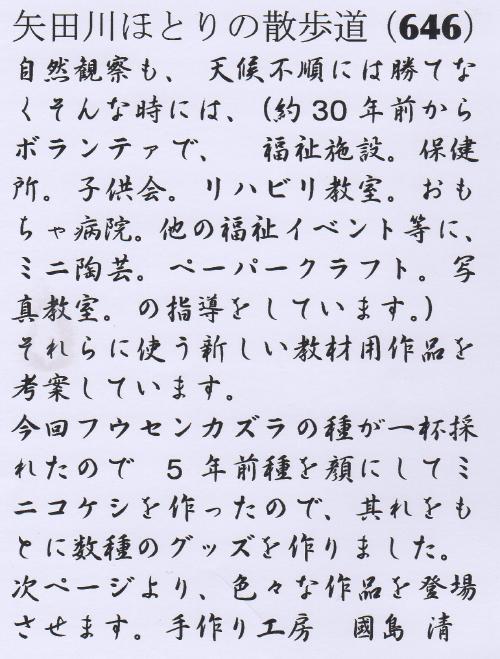 矢田川ほとりの散歩道（646）
自然観察も、　天候不順には勝てな
くそんな時には、（約 30 年前から
ボランテァで、　　福祉施設。保健
所。子供会。リハビリ教室。おも
ちゃ病院。他の福祉イベント等に、
ミニ陶芸。ペーパークラフト。写
真教室。の指導をしています。）
それらに使う新しい教材用作品を
考案しています。
今回フウセンカズラの種が一杯採
れたので　5 年前種を顔にしてミ
ニコケシを作ったので、其れをも
とに数種のグッズを作りました。
次ページより、色々な作品を登場
させます。手作り工房　國島 清